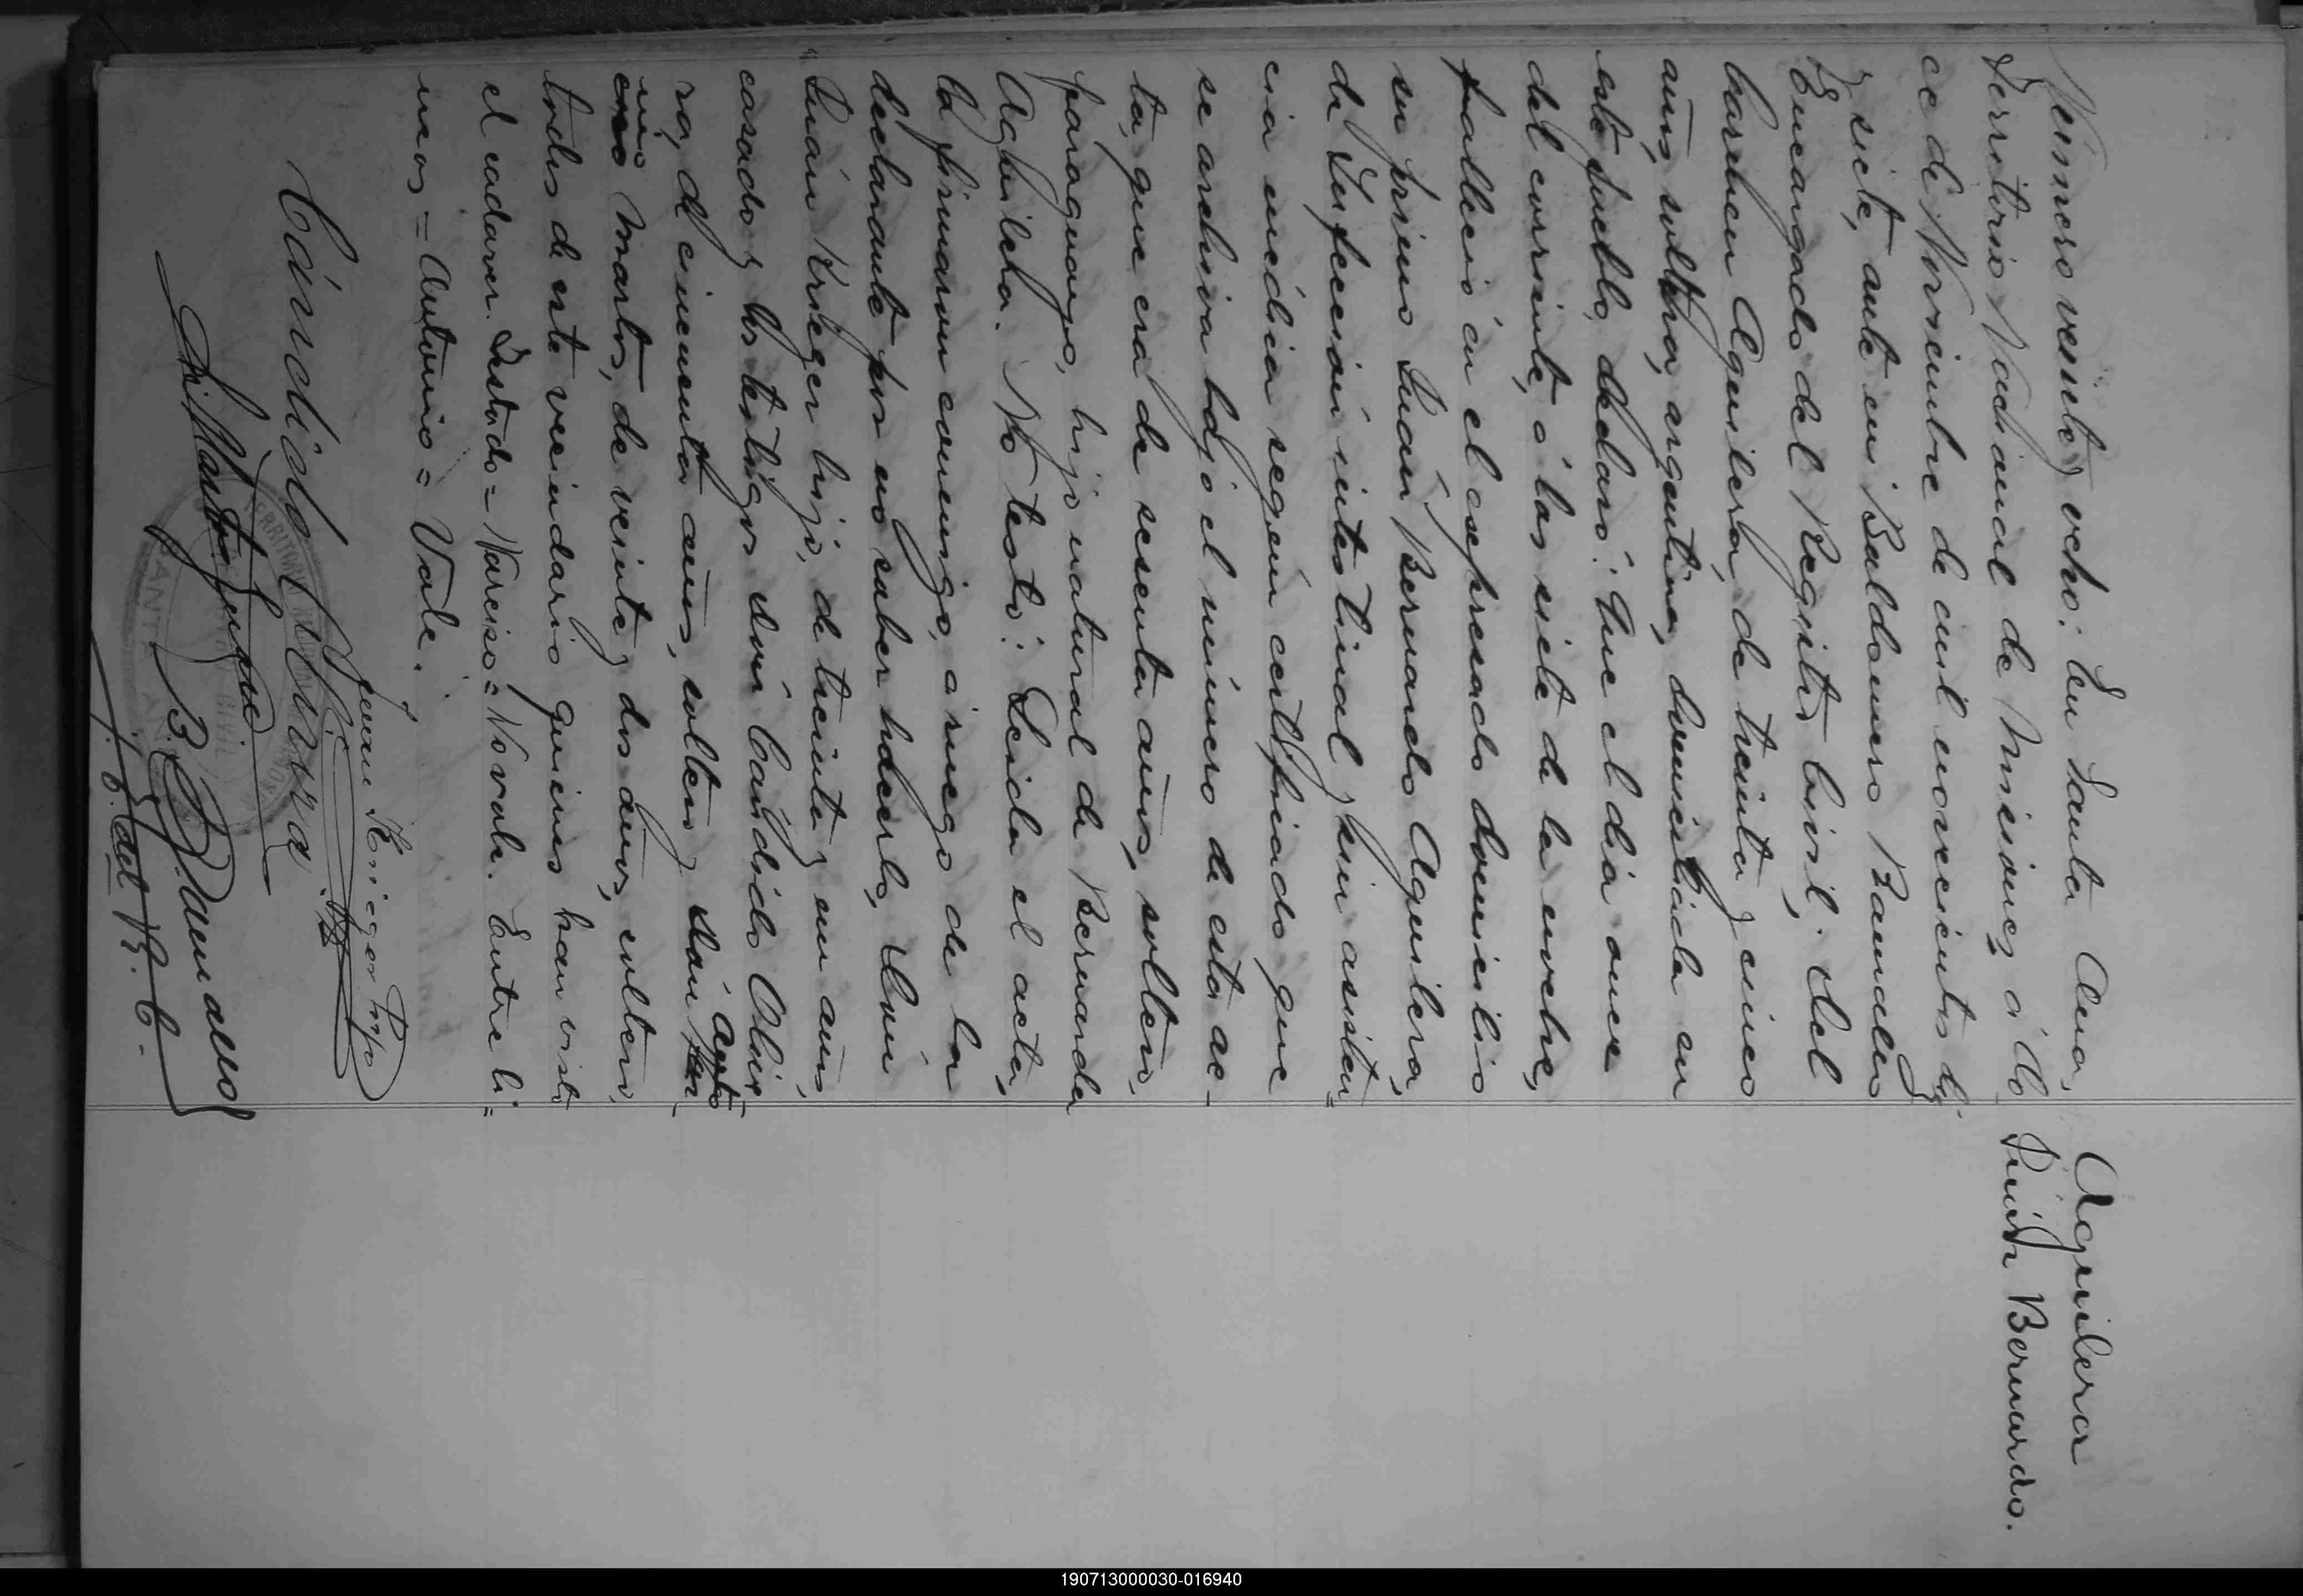 Aguilera
Juan Bernardo.
Número veinte y ocho: En Santa Ana,
Territorio Nacional de Misiones, á do
ce de Noviembre de mil novecientos diez
y siete, ante mi Baldomero Baudilio
Encargado del Registro Civil; del
Carmen Aguilera, de treinta y cinco
años, soltera, argentina, domiciliada en
este pueblo, declaró: Que el día once
del corriente, á las siete de la noche,
falleció en el expresado domicilio
su primo Juan Bernardo Aguilera,
de Infección intestinal, sin asisten=
cia médica según certificado que
se archiva bajo el número de esta ac-
ta, que era de sesenta años, soltero,
paraguayo, hijo natural de Bernarda
Aguilera. No testó: Leida el acta,
la firmaron conmigo, a ruego de la
declarante por no saber hacerlo, don
Juan Krieger hijo, de treinta y un años,
casado y los testigos don Cándido Olive
ra, de cincuenta años, soltero y don Anto
nio Martos, de veinte y dos años, soltero,
todos de este vecindario quienes han visto
el cadáver. Testado= Narciso= No vale. Entre li=
neas = Antonio = Vale.
Juan Krieger hijo
Cándido
J. del R. C.
190713000030-016940